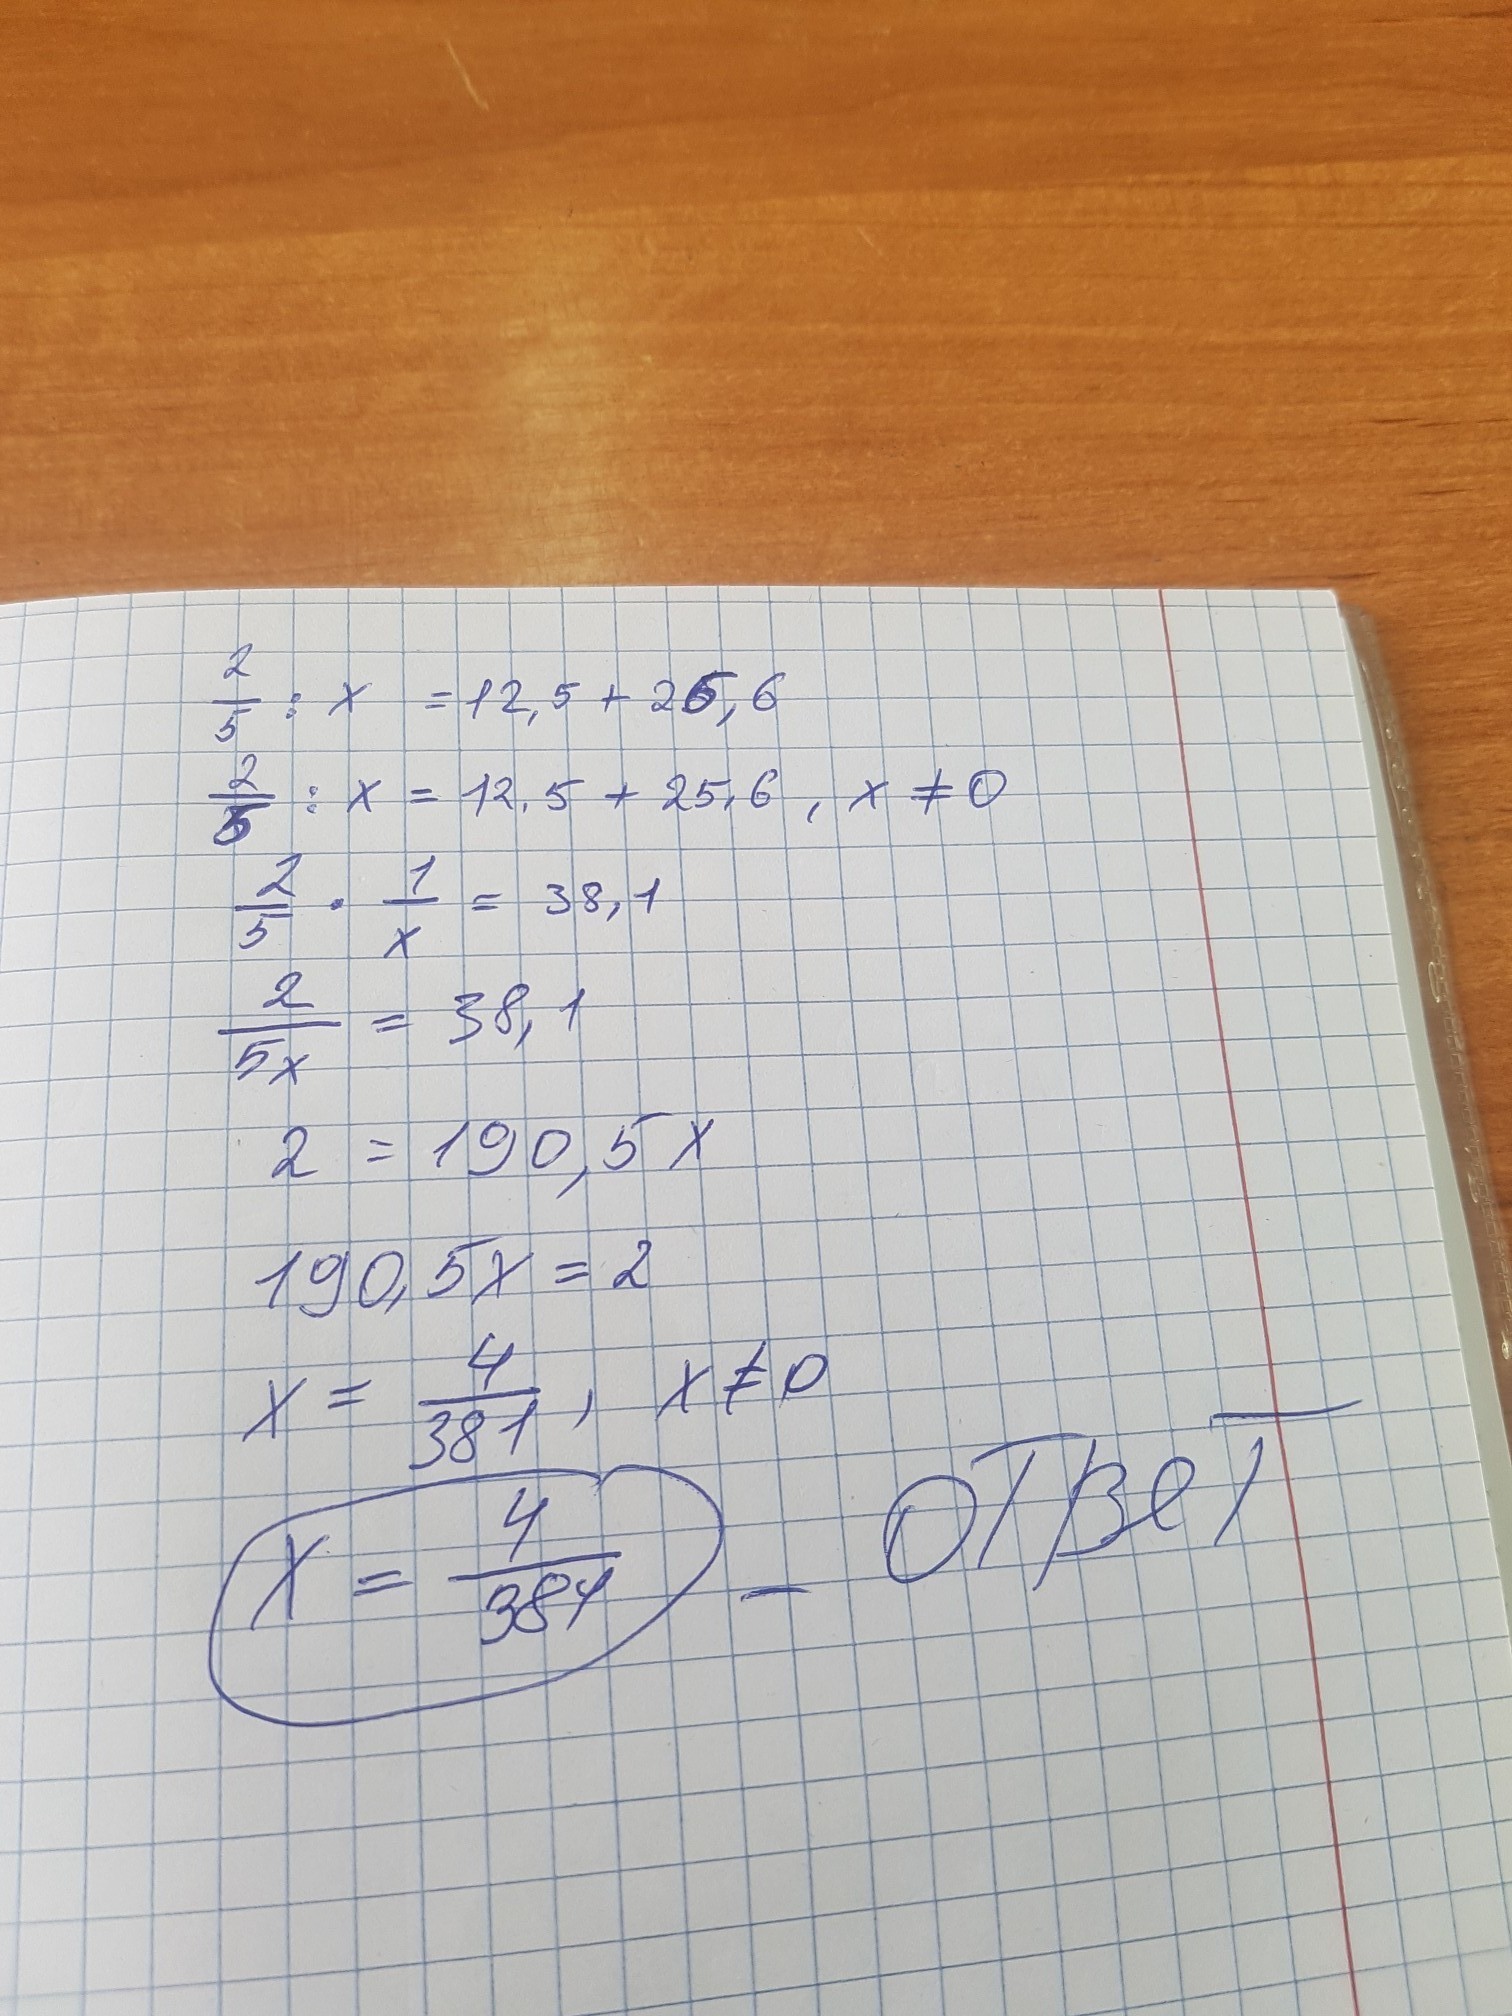 2/5 : x = 12,5 + 25,6
2/5 : x = 12,5 + 25,6 , x ≠ 0
2/5 · 1/x = 38,1
2/5x = 38,1
2 = 190,5x
190,5x = 2
x = 4/381 , x ≠ 0
x = 4/381 – ОТВЕТ